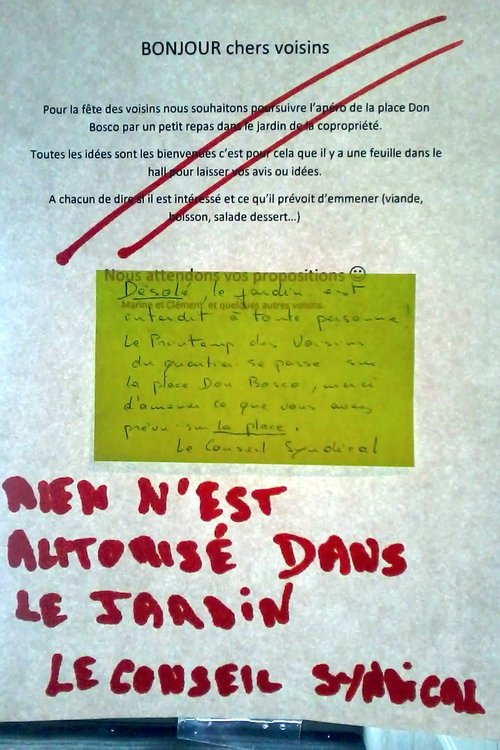 BONJOUR chers voisins
Pour la fête des voisins nous souhaitons poursuivre l'apéro de la place Don
Bosco par un petit repas dans le jardin de la copropriété.
Toutes les idées sont les bienvenues c'est pour cela que il y a une feuille dans le
hall pour laisser vos avis ou idées.
A chacun de dire si il est intéressé et ce qu'il prévoit d'emmener (viande,
boisson, salade dessert…)
Nous attendons vos propositions ☺
Marine et Clément et quelques autres voisins.
Désolé, le jardin est
interdit à toute personne!
Le Printemp des Voisins
du quartier se passe sur
la place Don Bosco, merci
d'amener ce que vous avez
prévu sur la place.
Le Conseil Syndical
RIEN N'EST
AUTORISÉ DANS
LE JARDIN
LE CONSEIL SYNDICAL